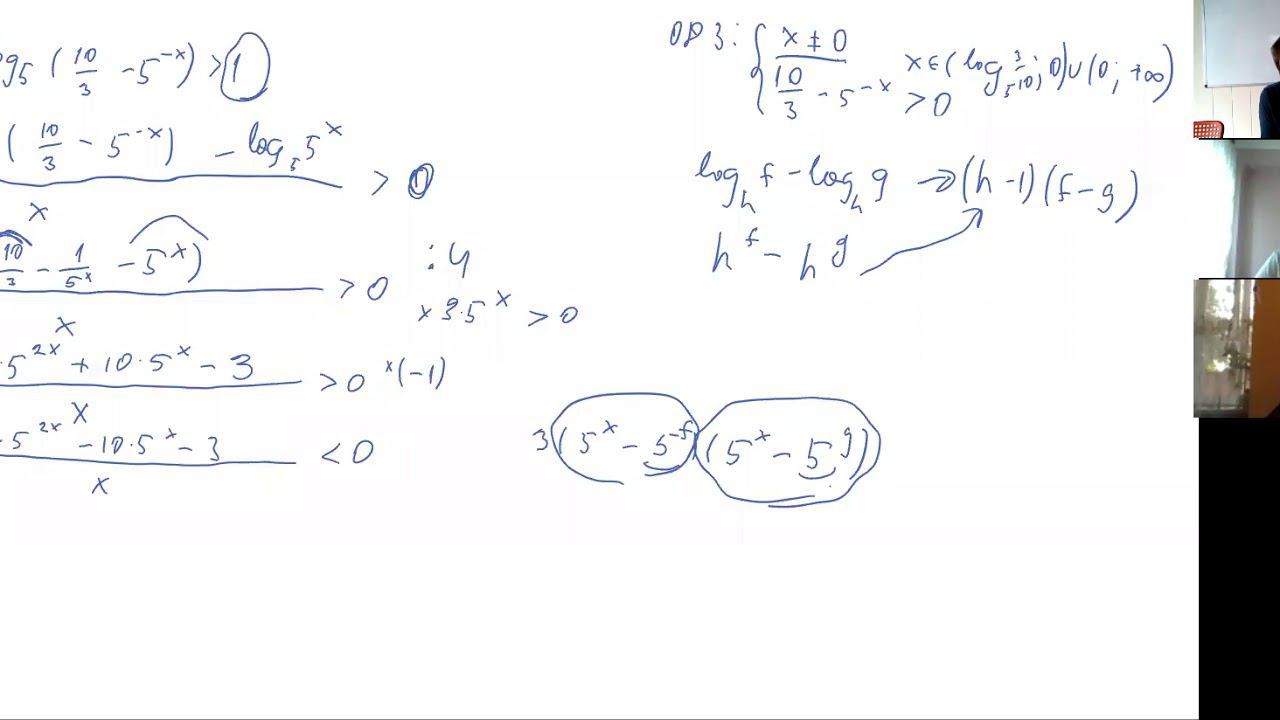 g5 (10/3 - 5^-x) > 1
(10/3 - 5^-x) - log_5 5^x / x > 0
10/3 - 1/5^x - 5^x) / x > 0 :4
x 3·5^x > 0
·5^2x + 10·5^x - 3 / x > 0 x(-1)
·5^2x - 10·5^x - 3 / x < 0
ОДЗ: { x ≠ 0
10/3 - 5^-x > 0
x ∈ (log_5 3/10; 0) ∪ (0; +∞)
log_h f - log_h g → (h - 1)(f - g)
h^f - h^g
3(5^x - 5^-f)(5^x - 5^g)